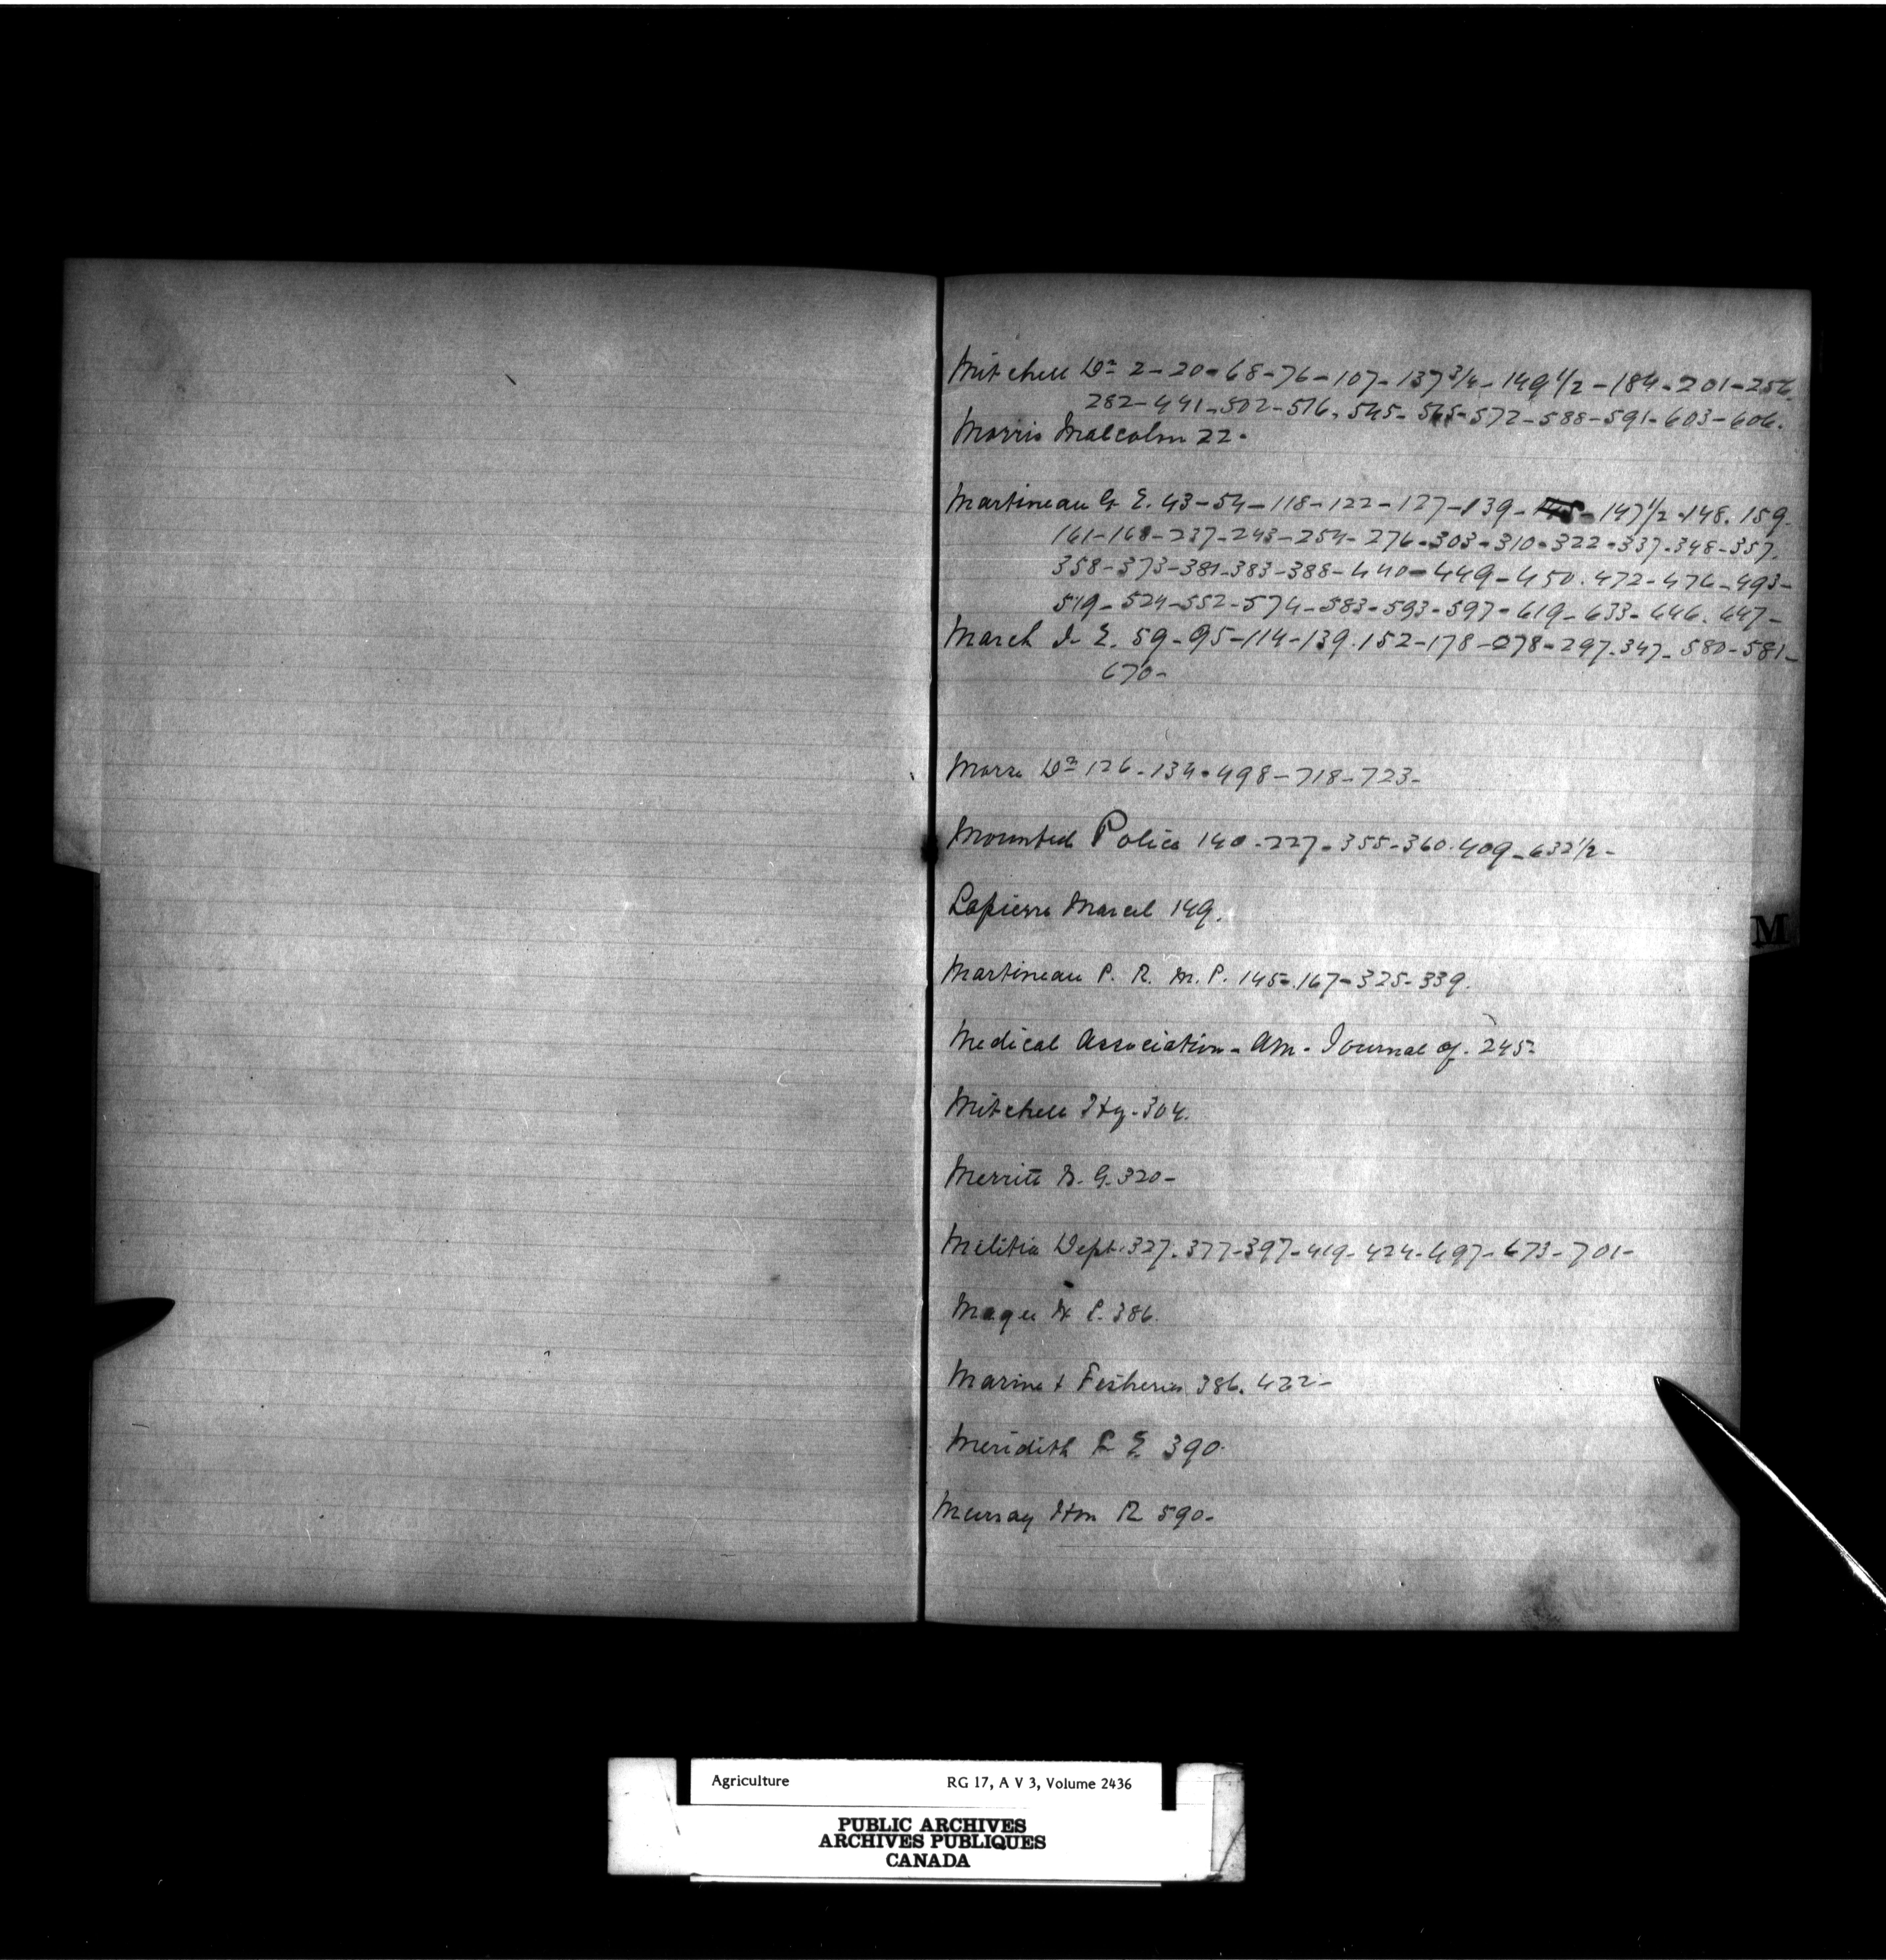 Mitchell Dr 2-20-68-76-107-137 3/4-149 1/2-184-201-256
282-441-502-516-545-565-572-588-591-603-606.
Morris Malcolm 22.
Martineau G E. 43-54-118-122-127-139- -147 1/2-148.159.
161-168-237-243-254-276-303-310-322-337-348-357.
358-373-381-383-388-440-449-450.472-476-493-
519-524-552-574-583-593-597-619-633-646.647-
March E. 59-95-114-139.152-178-278-297-347-580-581-
670-
Morse Dr 126-134-498-718-723-
Mounted Police 140-227-355-360.409-632 1/2-
M
Lapierre Marcel 149.
Martineau P. R. M.P. 145-167-325-339.
Medical Association - Am. Journal of. 245-
Mitchell Hy. 304.
Merritt G. 320-
Militia Dept. 327-377-397-419-424-497-673-701-
Magee P. 386.
Marine & Fisheries 386.422-
Meridith E 390.
Murray Hon R 590-
Agriculture RG 17, A V 3, Volume 2436
PUBLIC ARCHIVES
ARCHIVES PUBLIQUES
CANADA